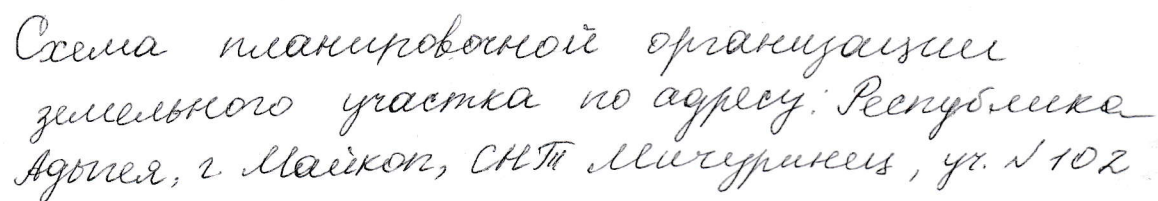 Схема планировочной организации
земельного участка по адресу: Республика
Адыгея, г. Майкоп, СНТ Мичуринец, уч. N 102